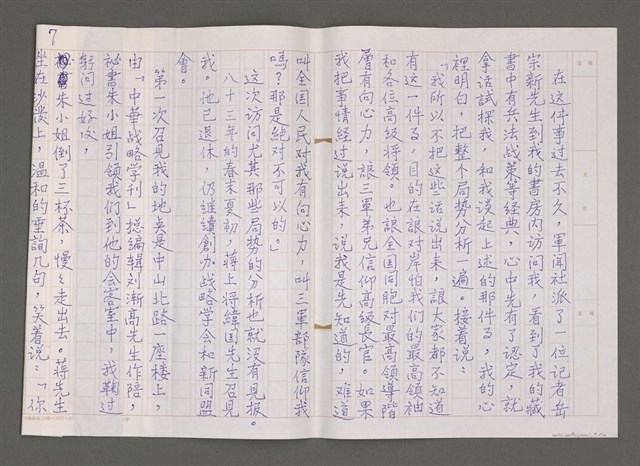 在这件事过去不久，軍闻社派了一位记者岳
宗新先生到我的書房內访问我，看到了我的藏
書中有兵法战策等经典，心中先有了认定，就
拿话試探我，和我谈起上述的那件了，我的心
裡明白，把整个局势分析一遍。接着说：
「我所以不把这些话说出来，讓大家都不知道
有这一件了，目的在讓对岸怕我们的最高領袖
和各位高級將領。也讓全国同胞对最高領導階
層有向心力，讓三軍弟兄信仰高級長官。如果
我把事情经过说出来，说我是先知道的，难道
叫全国人民对我有向心力，叫三軍部隊信仰我
嗎？那是絕对不可以的。」
这次访问尤其那些局势的分析也就沒有見报。
八十三年的春末夏初，蒋上将緯国先生召見
我。他已退休，仍继續創办战略学会和新同盟
會。
第一次召見我的地矣是中山北路一座楼上，
由「中華战略学刊」总编辑刘漸高先生作陪，
祕書朱小姐引領我们到他的会客室中，我鞠过
躬问过好后，
朱小姐倒了三杯茶，慢々走出去。蒋先生
坐在沙發上，温和的垂詢几句，笑着说：「你
7